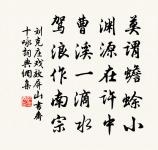 莫謂蟾蜍小
淵源在許中
曹溪一滴水
駕浪作南宗
刘克庄戏效屏山書齋
十咏詞典网集